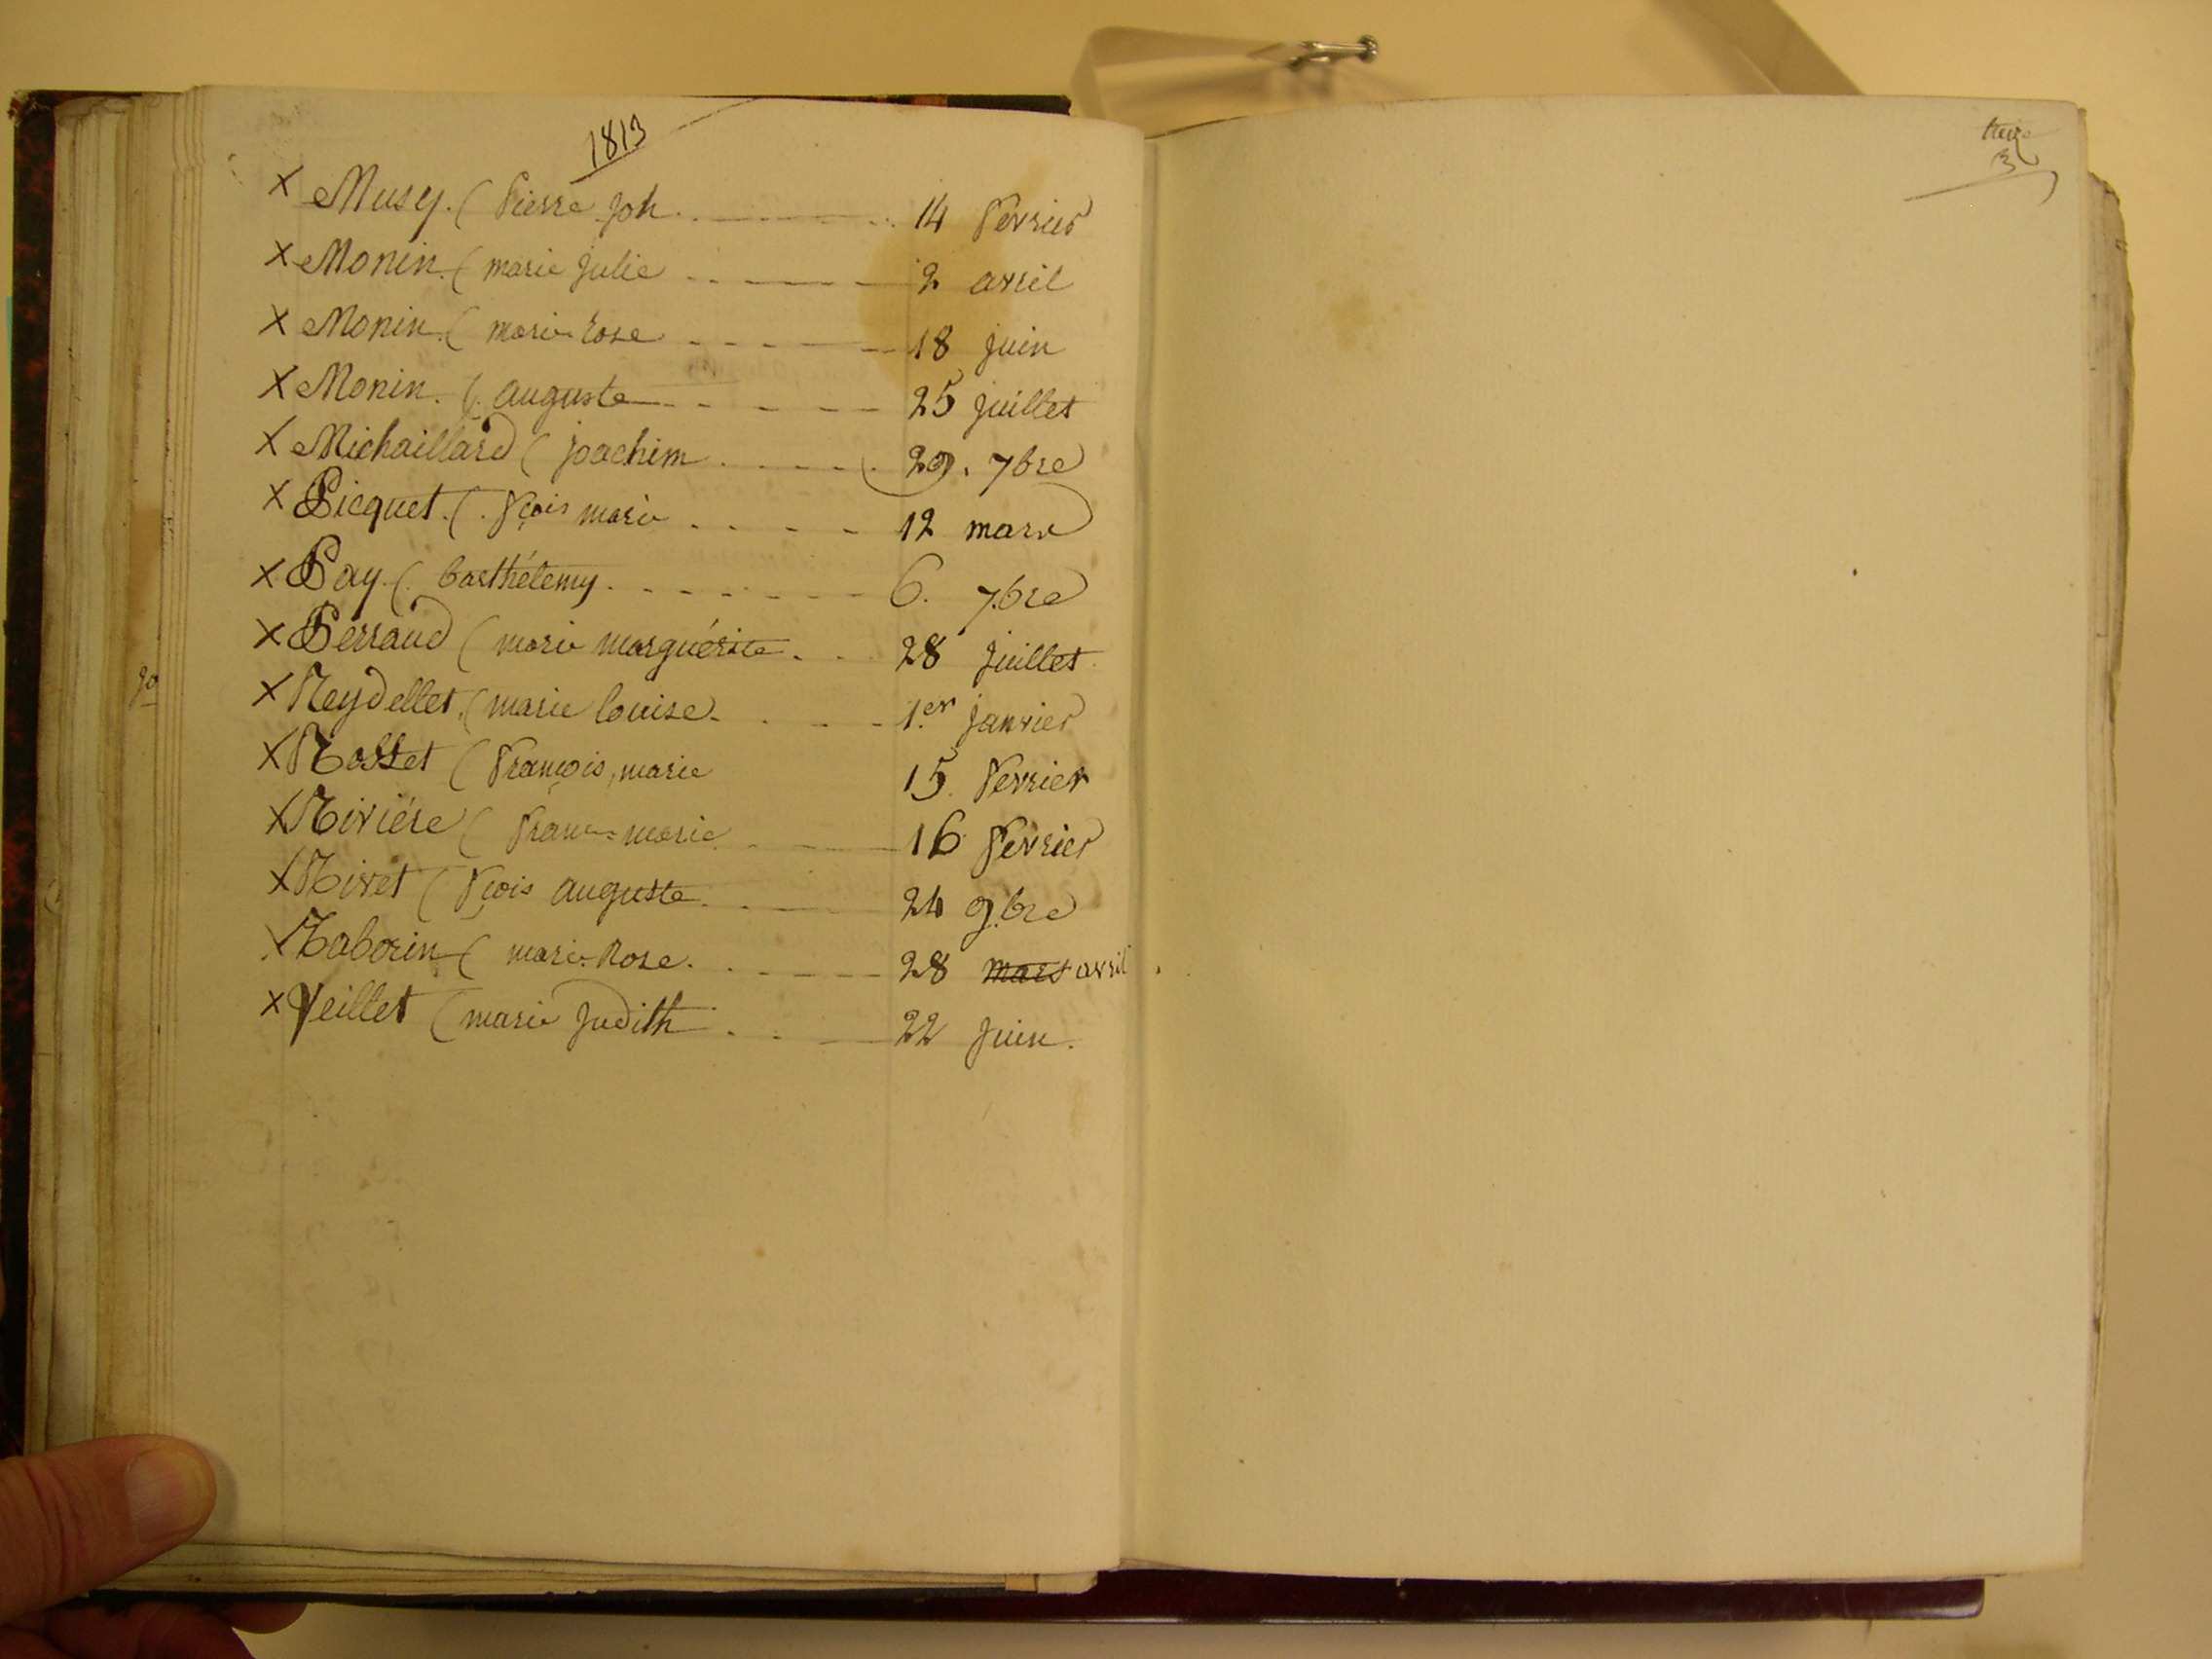 1813
x Musy. ( Pierre Joh. 14 fevrier
x Monin. ( marie julie 2 avril
x Monin. ( marie rose 18 juin
x Monin. ( auguste 25 juillet
x Michaillard ( joachim 29. 7bre
x Picquet. ( fçois marie 12 mars
x Pay. ( barthélemy. 6. 7.bre
x Perraud ( marie marguérite 28 juillet
x Reydellet. ( marie louise. 1.er janvier
x Rosset ( françois, marie 15. fevrier
x Riviére ( marie 16 fevrier
x Rivet ( fçois auguste. 24 9.bre
x Taborin ( marie Rose. 28 mars avril
x Veillet ( marie judith 22 juin.